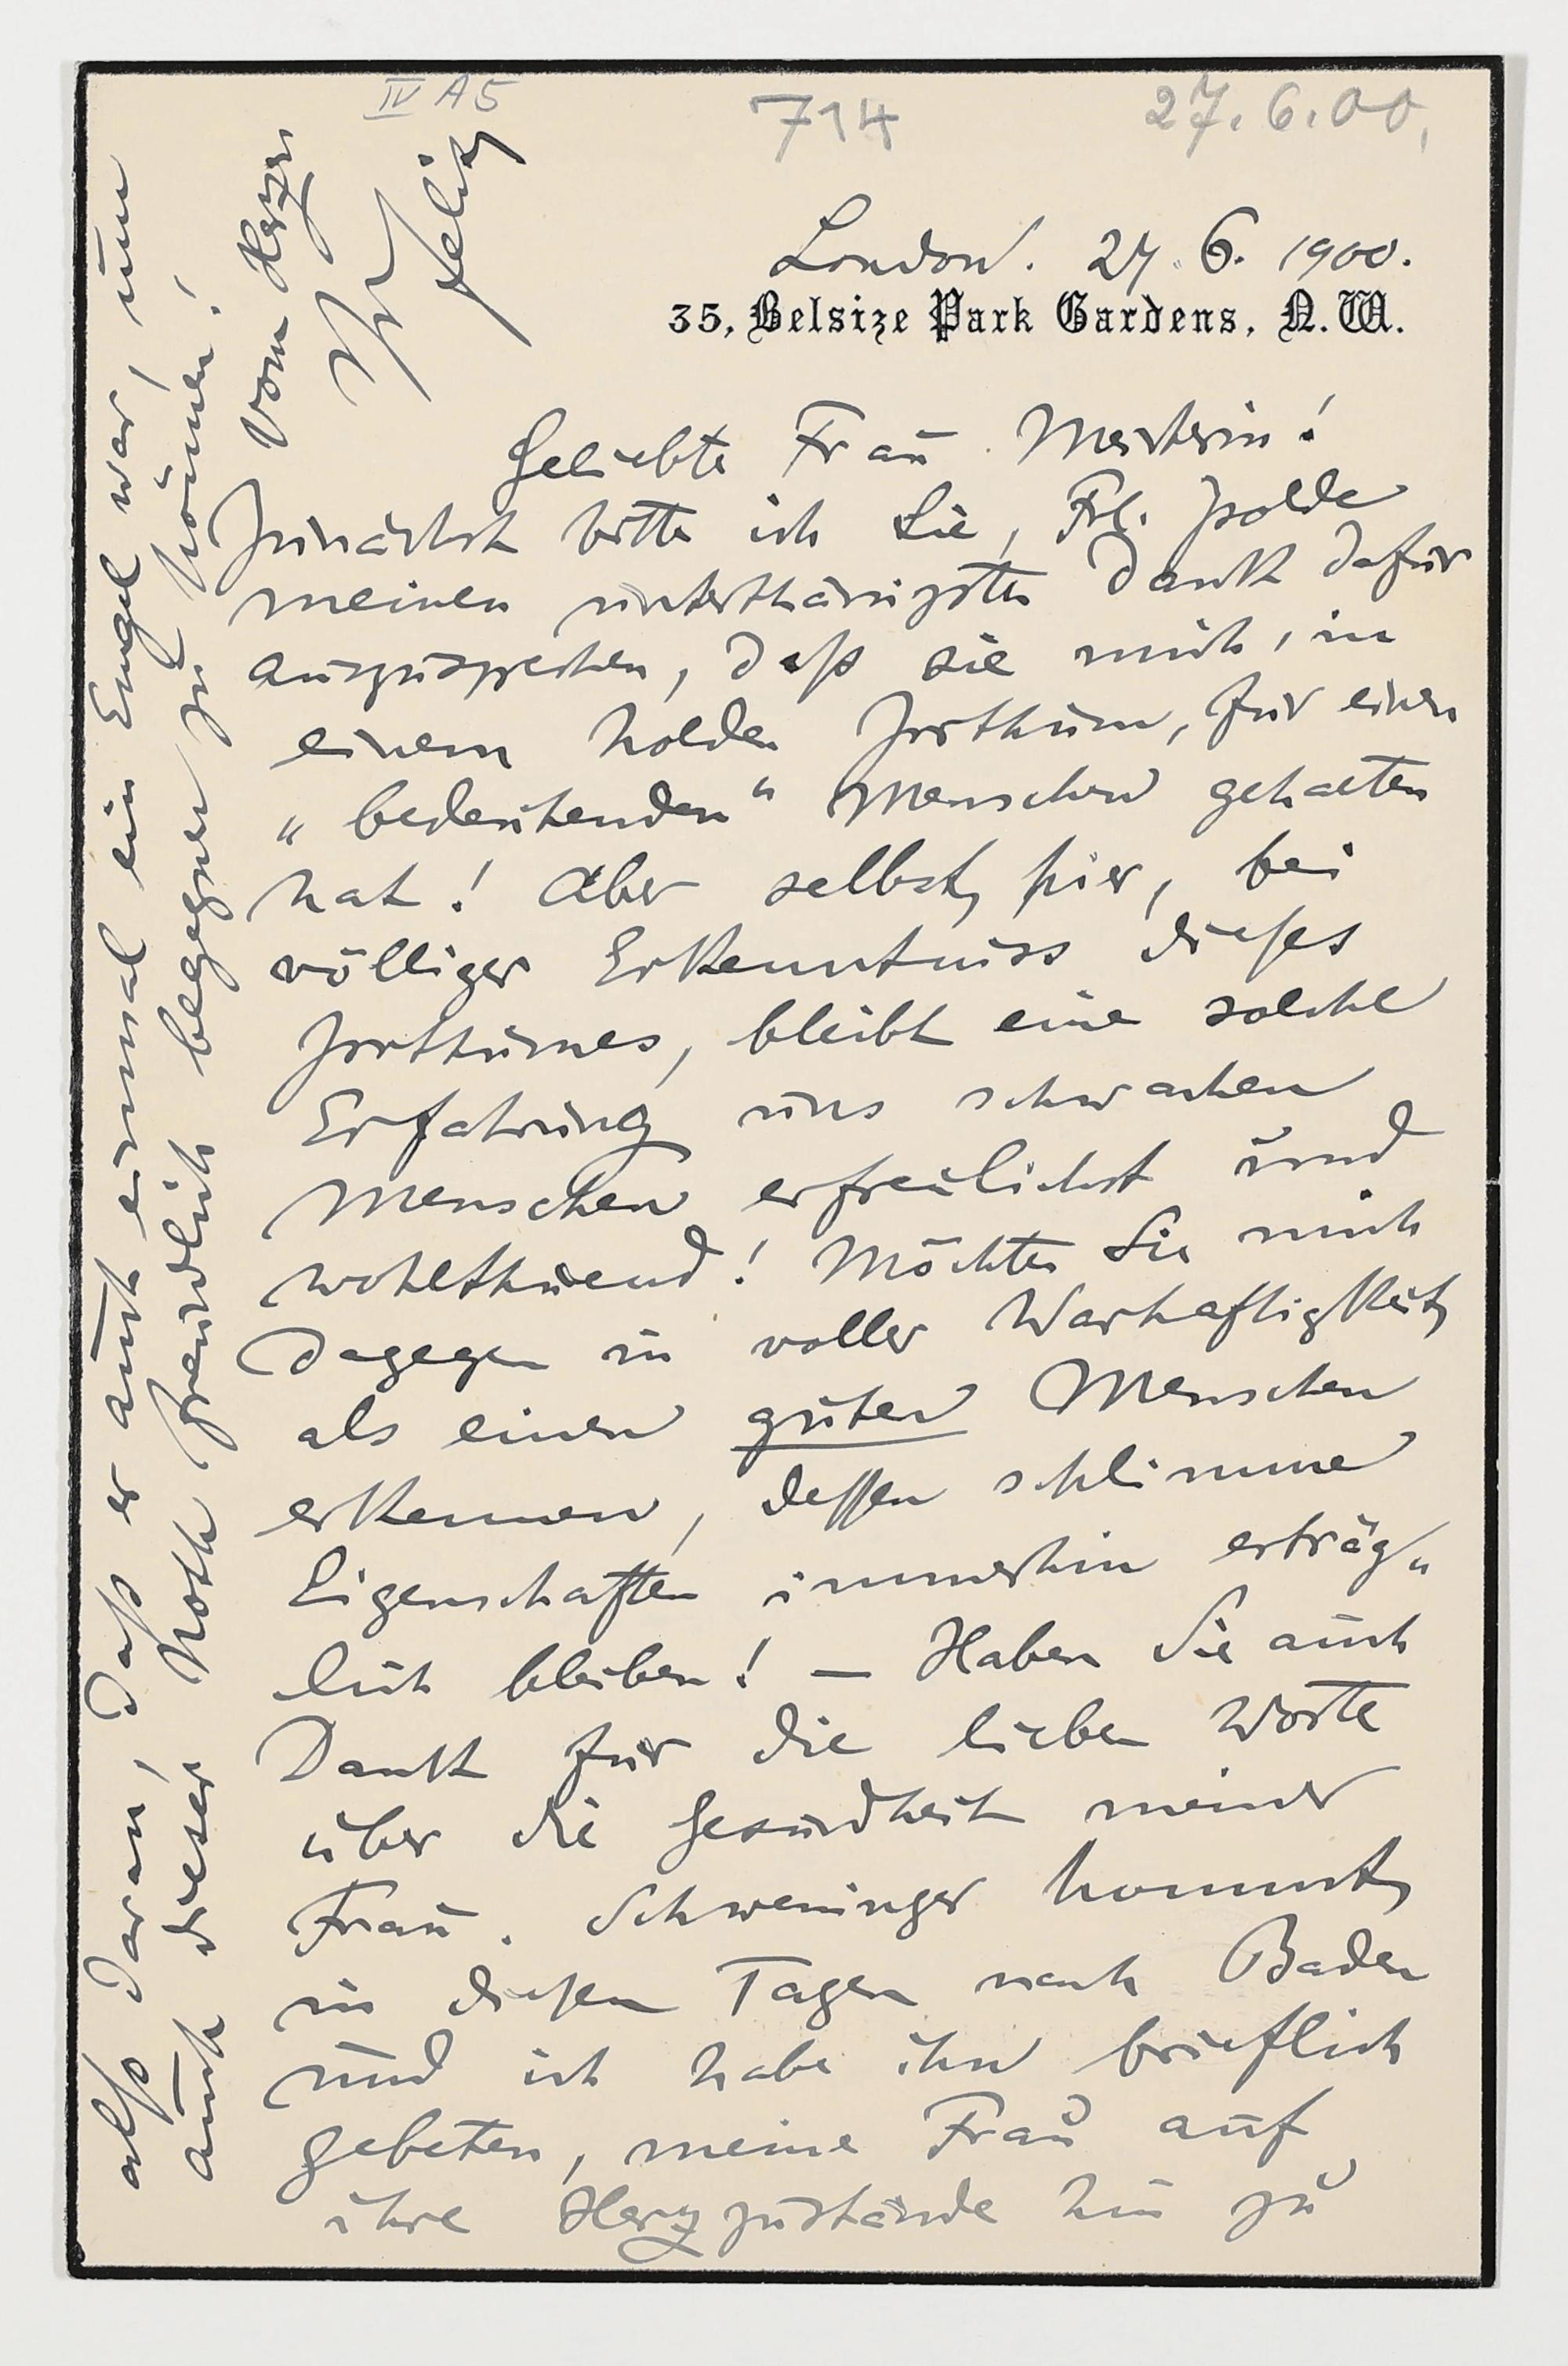 IV A 5
714
27. 6. 00.
London. 27. 6. 1900.
35, Belsize Park Gardens, N.W.
Geliebte Frau Meisterin!
Zunächst bitte ich Sie, Frl. Isolde
meinen unterthänigsten Dank dafür
auszusprechen, daß sie mich, in
einem holden Irrthum, für einen
„bedeutenden“ Menschen gehalten
hat! Aber selbst hier, bei
völliger Erkenntniss dieses
Irrthumes, bleibt eine solche
Erfahrung uns schwachen
Menschen erfreulichst und
wohlthuend! Möchten Sie mich
dagegen in voller Warhaftigkeit
als einen guten Menschen
erkennen, dessen schlimme
Eigenschaften immerhin erträg„
lich bleiben! – Haben Sie auch
Dank für die lieben Worte
über die Gesundheit meiner
Frau. Schweninger kommt
in diesen Tagen nach Baden
und ich habe ihn brieflich
gebeten, meine Frau auf
ihre Herzzustände hin zu
als daran, daß er auch einmal ein Engel war, um
auch dieser Noth freundlich begegnen zu können!
Vom Herzen
Ihr
Felix